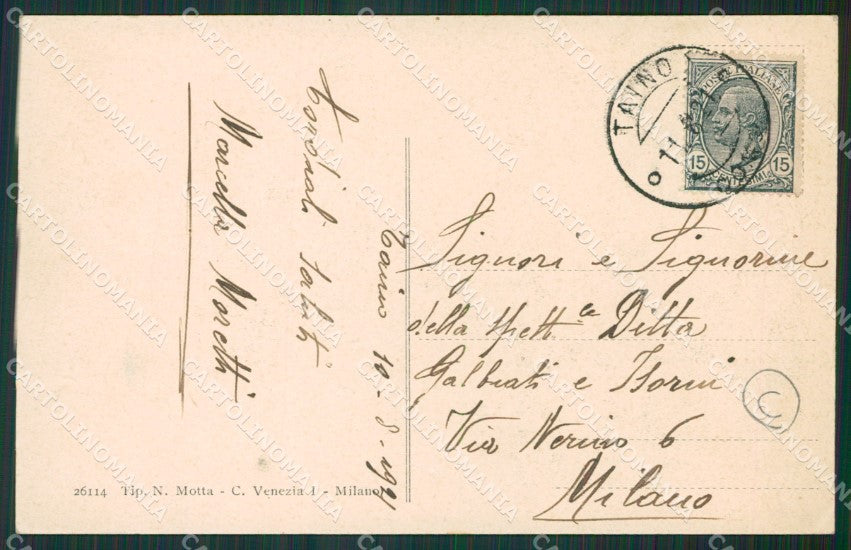 Taino 10-8-1921
Cordiali saluti
Marcella Moretti
26114 Tip. N. Motta - C. Venezia 1 - Milano
TAINO
11.8.21
COMO
POSTE ITALIANE
15 15
CENTESIMI
Signori e Signorine
della Spett.le Ditta
Galbiati e
Via Nerino 6
Milano
C
CARTOLINOMANIA